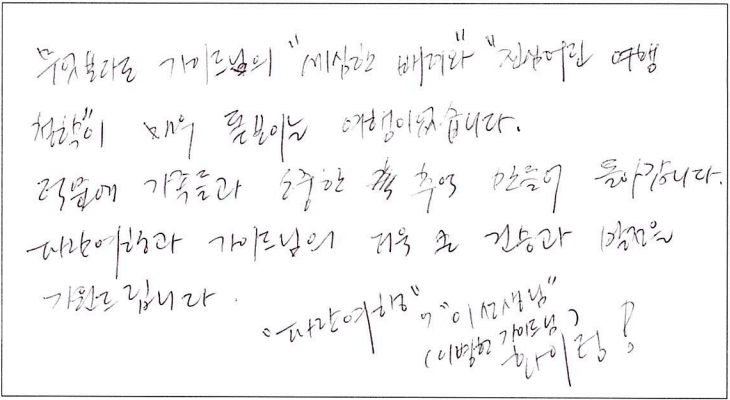 무엇보다도 가이드님의 "세심한 배려"와 "진심어린 여행
철학"이 매우 돋보이는 여행이었습니다.
덕분에 가족들과 소중한 추억 만들어 돌아갑니다.
파란여행과 가이드님의 더욱 큰 건승과 발전을
기원드립니다.
"파란여행" "이선생님"
(이병헌 가이드님)
화이팅!